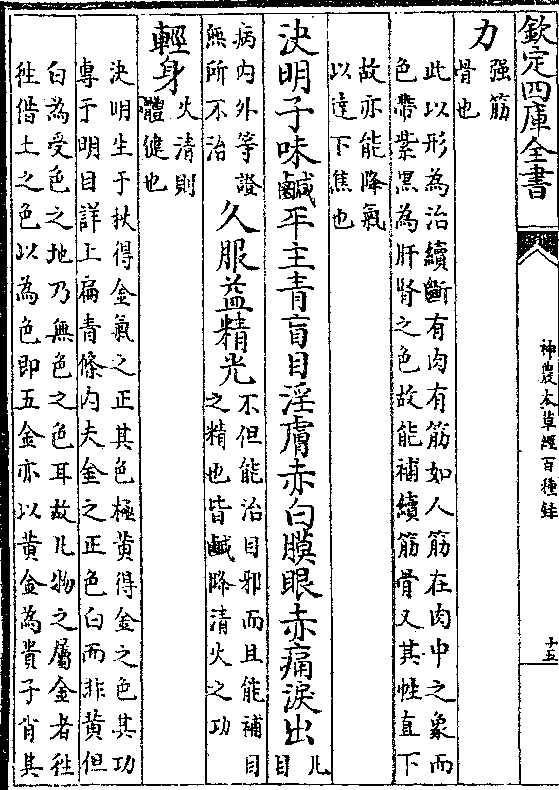 欽定四庫全書
神農本草經百種錄
十五
力
强筋
骨也
此以形為治續斷有肉有筋如人筋在肉中之象而
色帶紫黑為肝腎之色故能補續筋骨又其性直下
故亦能降氣
以達下焦也
決明子味鹹平主青盲目淫膚赤白膜眼赤痛淚出
凡
目
病内外等證
無所不治
久服益精光
不但能治目邪而且能補目
之精也皆鹹降清火之功
輕身
火清則
體健也
決明生于秋得金氣之正其色極黄得金之色其功
專于明目詳上扁青條内夫金之正色白而非黄但
白為受色之地乃無色之色耳故凡物之屬金者往
往借土之色以為色即五金亦以黄金為貴子肖其